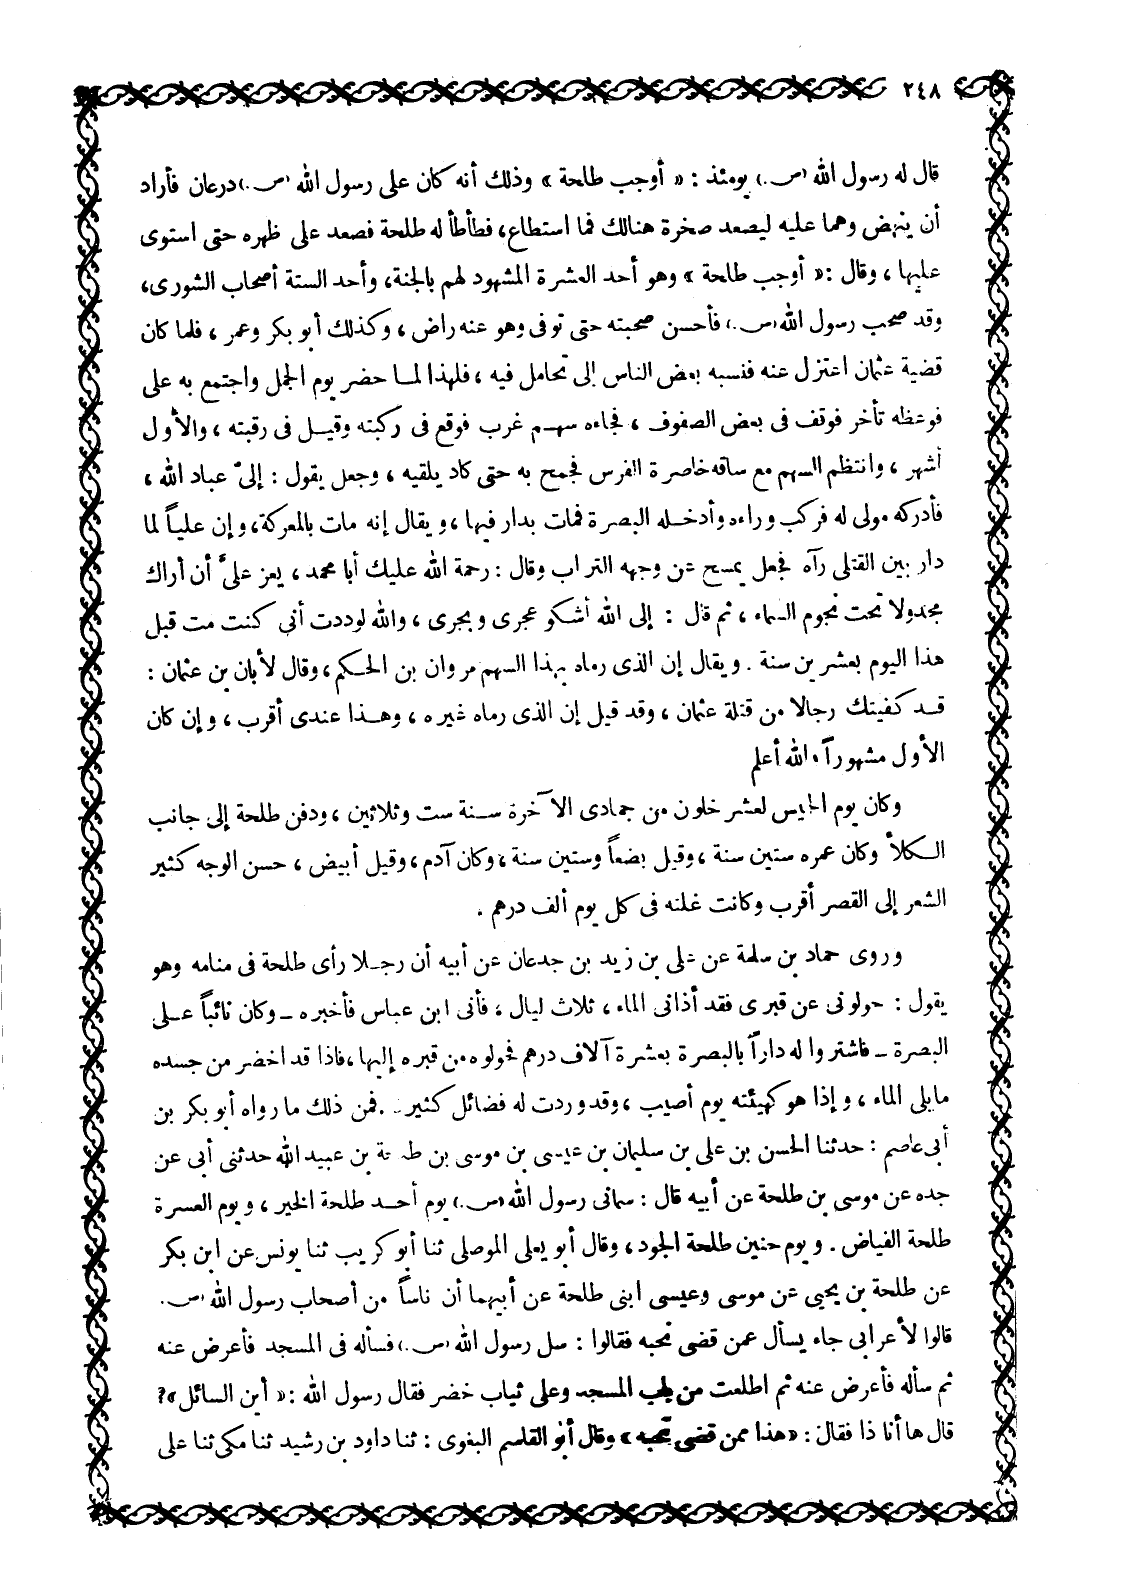 ٢٤٨
قال له رسول الله (ص.) يومئذ : « أوجب طلحة » وذلك أنه كان على رسول الله (ص.) درعان فأراد
أن ينهض وهما عليه ليصعد صخرة هنالك فما استطاع، فطأطأ له طلحة فصعد على ظهره حتى استوى
عليها ، وقال : « أوجب طلحة » وهو أحد العشرة المشهود لهم بالجنة، وأحد الستة أصحاب الشورى،
وقد صحب رسول الله (ص.) فأحسن صحبته حتى توفى وهو عنه راض ، وكذلك أبو بكر وعمر ، فلما كان
قضية عثمان اعتزل عنه فنسبه بعض الناس إلى تحامل فيه ، فلهذا لما حضر يوم الجمل واجتمع به على
فوعظه تأخر فوقف فى بعض الصفوف ، فجاءه سهم غرب فوقع فى ركبته وقيل فى رقبته ، والأول
أشهر ، وانتظم السهم مع ساقه خاصرة الفرس فجمح به حتى كاد يلقيه ، وجعل يقول : إلىّ عباد الله ،
فأدركه مولى له فركب وراءه وأدخله البصرة فمات بدار فيها ، ويقال إنه مات بالمعركة، وإن علياً لما
دار بين القتلى رآه فجعل يمسح عن وجهه التراب وقال : رحمة الله عليك أبا محمد ، يعز علىَّ أن أراك
مجدولا تحت نجوم السماء ، ثم قال : إلى الله أشكو عجرى وبجرى ، والله لوددت أني كنت مت قبل
هذا اليوم بعشرين سنة . ويقال إن الذى رماه بهذا السهم مروان بن الحكم ، وقال لأبان بن عثمان :
قد كفيتك رجالا من قتلة عثمان ، وقد قيل إن الذى رماه غيره ، وهذا عندى أقرب ، وإن كان
الأول مشهوراً والله أعلم
وكان يوم الخميس لعشر خلون من جمادى الآخرة سنة ست وثلاثين ، ودفن طلحة إلى جانب
الكلأ وكان عمره ستين سنة ، وقيل بضعاً وستين سنة ، وكان آدم ، وقيل أبيض ، حسن الوجه كثير
الشعر إلى القصر أقرب وكانت غلته فى كل يوم ألف درهم .
وروى حماد بن سلمة عن على بن زيد بن جدعان عن أبيه أن رجلا رأى طلحة فى منامه وهو
يقول : حولونى عن قبرى فقد أذانى الماء ، ثلاث ليال ، فأتى ابن عباس فأخبره ـ وكان نائباً على
البصرة ـ فاشتروا له داراً بالبصرة بعشرة آلاف درهم فحولوه من قبره إليها ، فاذا قد اخضر من جسده
مايلى الماء ، وإذا هو كهيئته يوم أصيب ، وقد وردت له فضائل كثيرة . فمن ذلك ما رواه أبو بكر بن
أبى عاصم : حدثنا الحسن بن على بن سليمان بن عيسى بن موسى بن طلحة بن عبيد الله حدثنى أبى عن
جده عن موسى بن طلحة عن أبيه قال : سمانى رسول الله (ص.) يوم أحد طلحة الخير ، ويوم العسرة
طلحة الفياض . ويوم حنين طلحة الجود ، وقال أبو يعلى الموصلى ثنا أبو كريب ثنا يونس عن ابن بكر
عن طلحة بن يحيى عن موسى وعيسى ابنى طلحة عن أبيهما أن ناساً من أصحاب رسول الله (ص.)
قالوا لأعرابى جاء يسأل عمن قضى نحبه فقالوا : سل رسول الله (ص.) فسأله فى المسجد فأعرض عنه
ثم سأله فأعرض عنه ثم اطلعت من باب المسجد وعلى ثياب خضر فقال رسول الله : « أين السائل »؟
قال ها أنا ذا فقال : « هذا ممن قضى نحبه » وقال أبو القاسم البغوى : ثنا داود بن رشيد ثنا مكى ثنا على